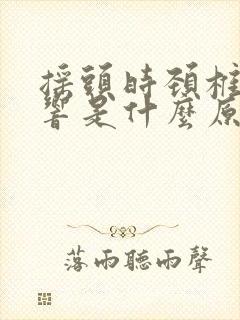 搖頭時頚椎
響是什麼原
落雨聽雨聲